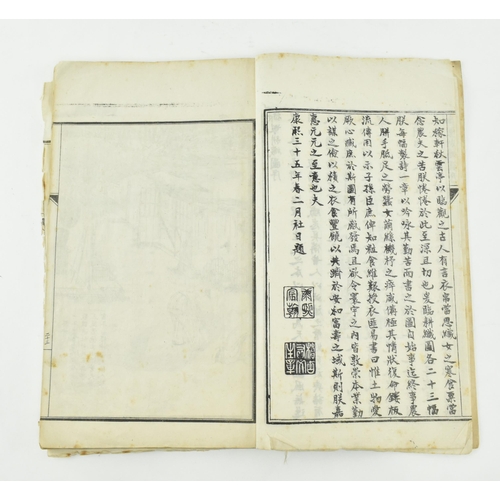 知稼軒秋雲亭以臨觀之古人有言衣帛當思織女之寒食粟當
念農夫之苦朕惓惓於此至深且切也爰繪耕織圖各二十三幅
朕每幅製詩一章以吟詠其勤苦而書之於圖自始事迄終事農
人胼手胝足之勞蠶女繭絲機杼之瘁咸備極其情狀復命鏤板
流傳用以示子孫臣庶俾知粒食維艱授衣匪易書曰惟土物愛
厥心臧庶於斯圖有所感發焉且欲令寰宇之內皆敦崇本業勤
以謀之儉以積之衣食豐饒以共躋於安和富壽之域斯則朕嘉
惠元元之至意也夫
康熙三十五年春二月社日題
康熙宸翰